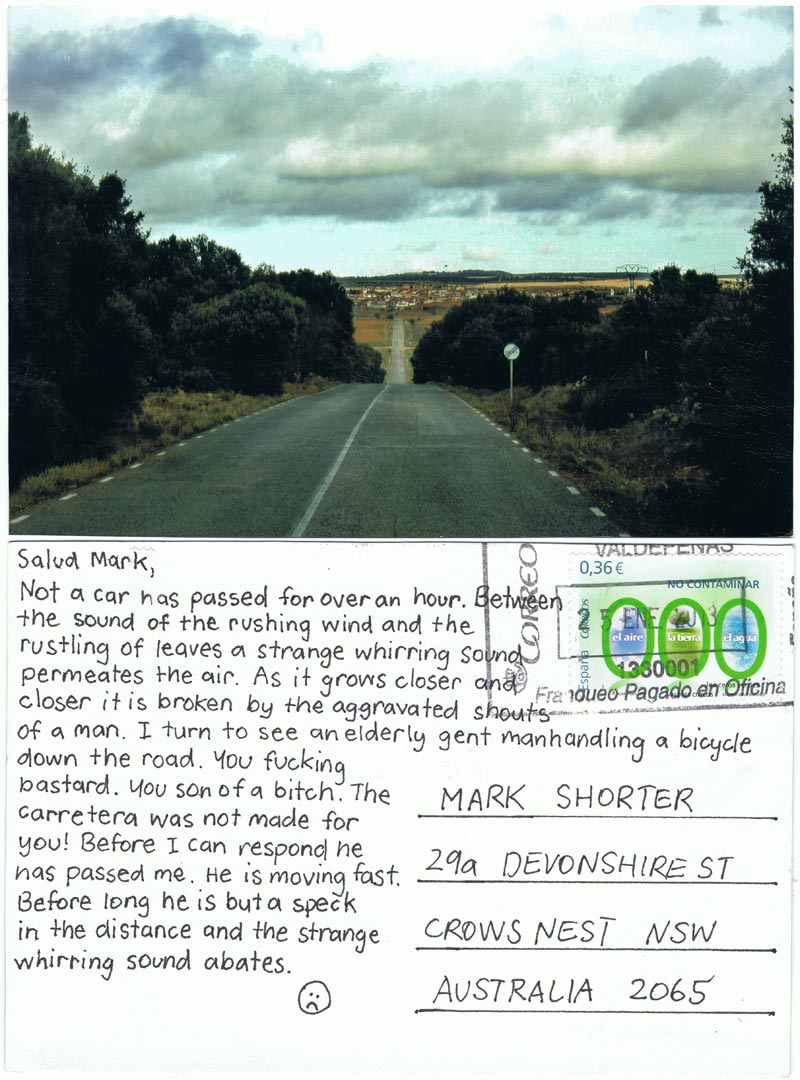 Salud Mark,
Not a car has passed for over an hour. Between
the sound of the rushing wind and the
rustling of leaves a strange whirring sound
permeates the air. As it grows closer and
closer it is broken by the aggravated shouts
of a man. I turn to see an elderly gent manhandling a bicycle
down the road. You fucking
bastard. You son of a bitch. The
carretera was not made for
you! Before I can respond he
has passed me. He is moving fast.
Before long he is but a speck
in the distance and the strange
whirring sound abates.
VALDEPEÑAS
0,36 €
NO CONTAMINAR
CORREO
5 ENE
el aire la tierra el agua
España correos
1330001
Franqueo Pagado en Oficina
MARK SHORTER
29a DEVONSHIRE ST
CROWS NEST NSW
AUSTRALIA 2065